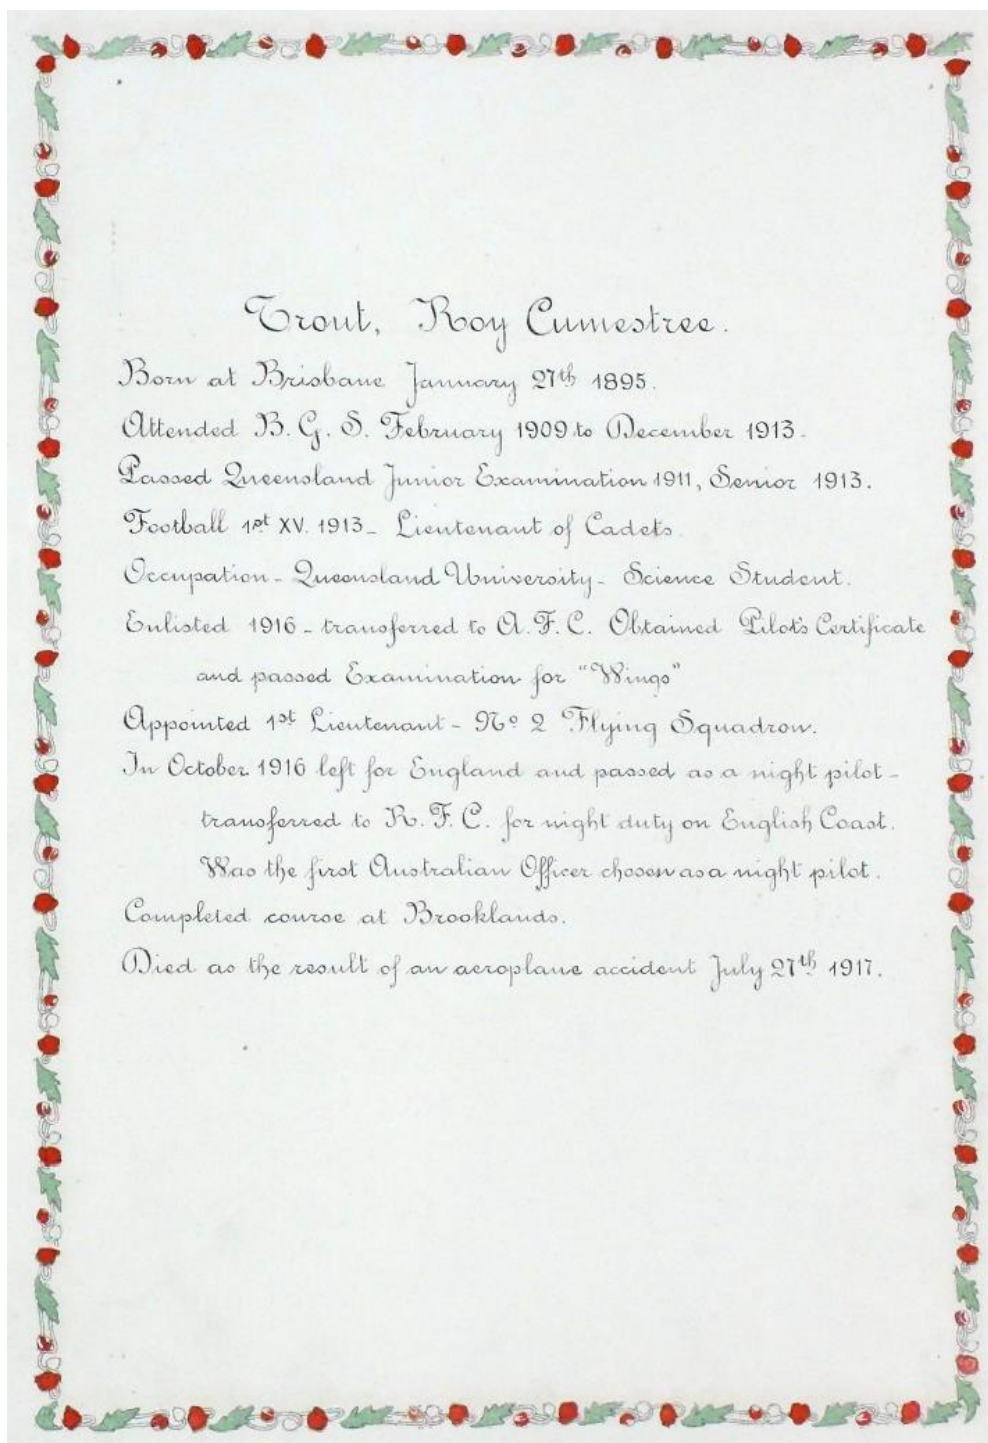 Trout, Roy Cumestree.
Born at Brisbane January 27th 1895.
Attended B. G. S. February 1909 to December 1913.
Passed Queensland Junior Examination 1911, Senior 1913.
Football 1st XV. 1913 - Lieutenant of Cadets.
Occupation - Queensland University - Science Student.
Enlisted 1916 - transferred to A. F. C. Obtained Pilot's Certificate
and passed Examination for "Wings"
Appointed 1st Lieutenant - No 2 Flying Squadron.
In October 1916 left for England and passed as a night pilot -
transferred to R. F. C. for night duty on English Coast.
Was the first Australian Officer chosen as a night pilot.
Completed course at Brooklands.
Died as the result of an aeroplane accident July 27th 1917.